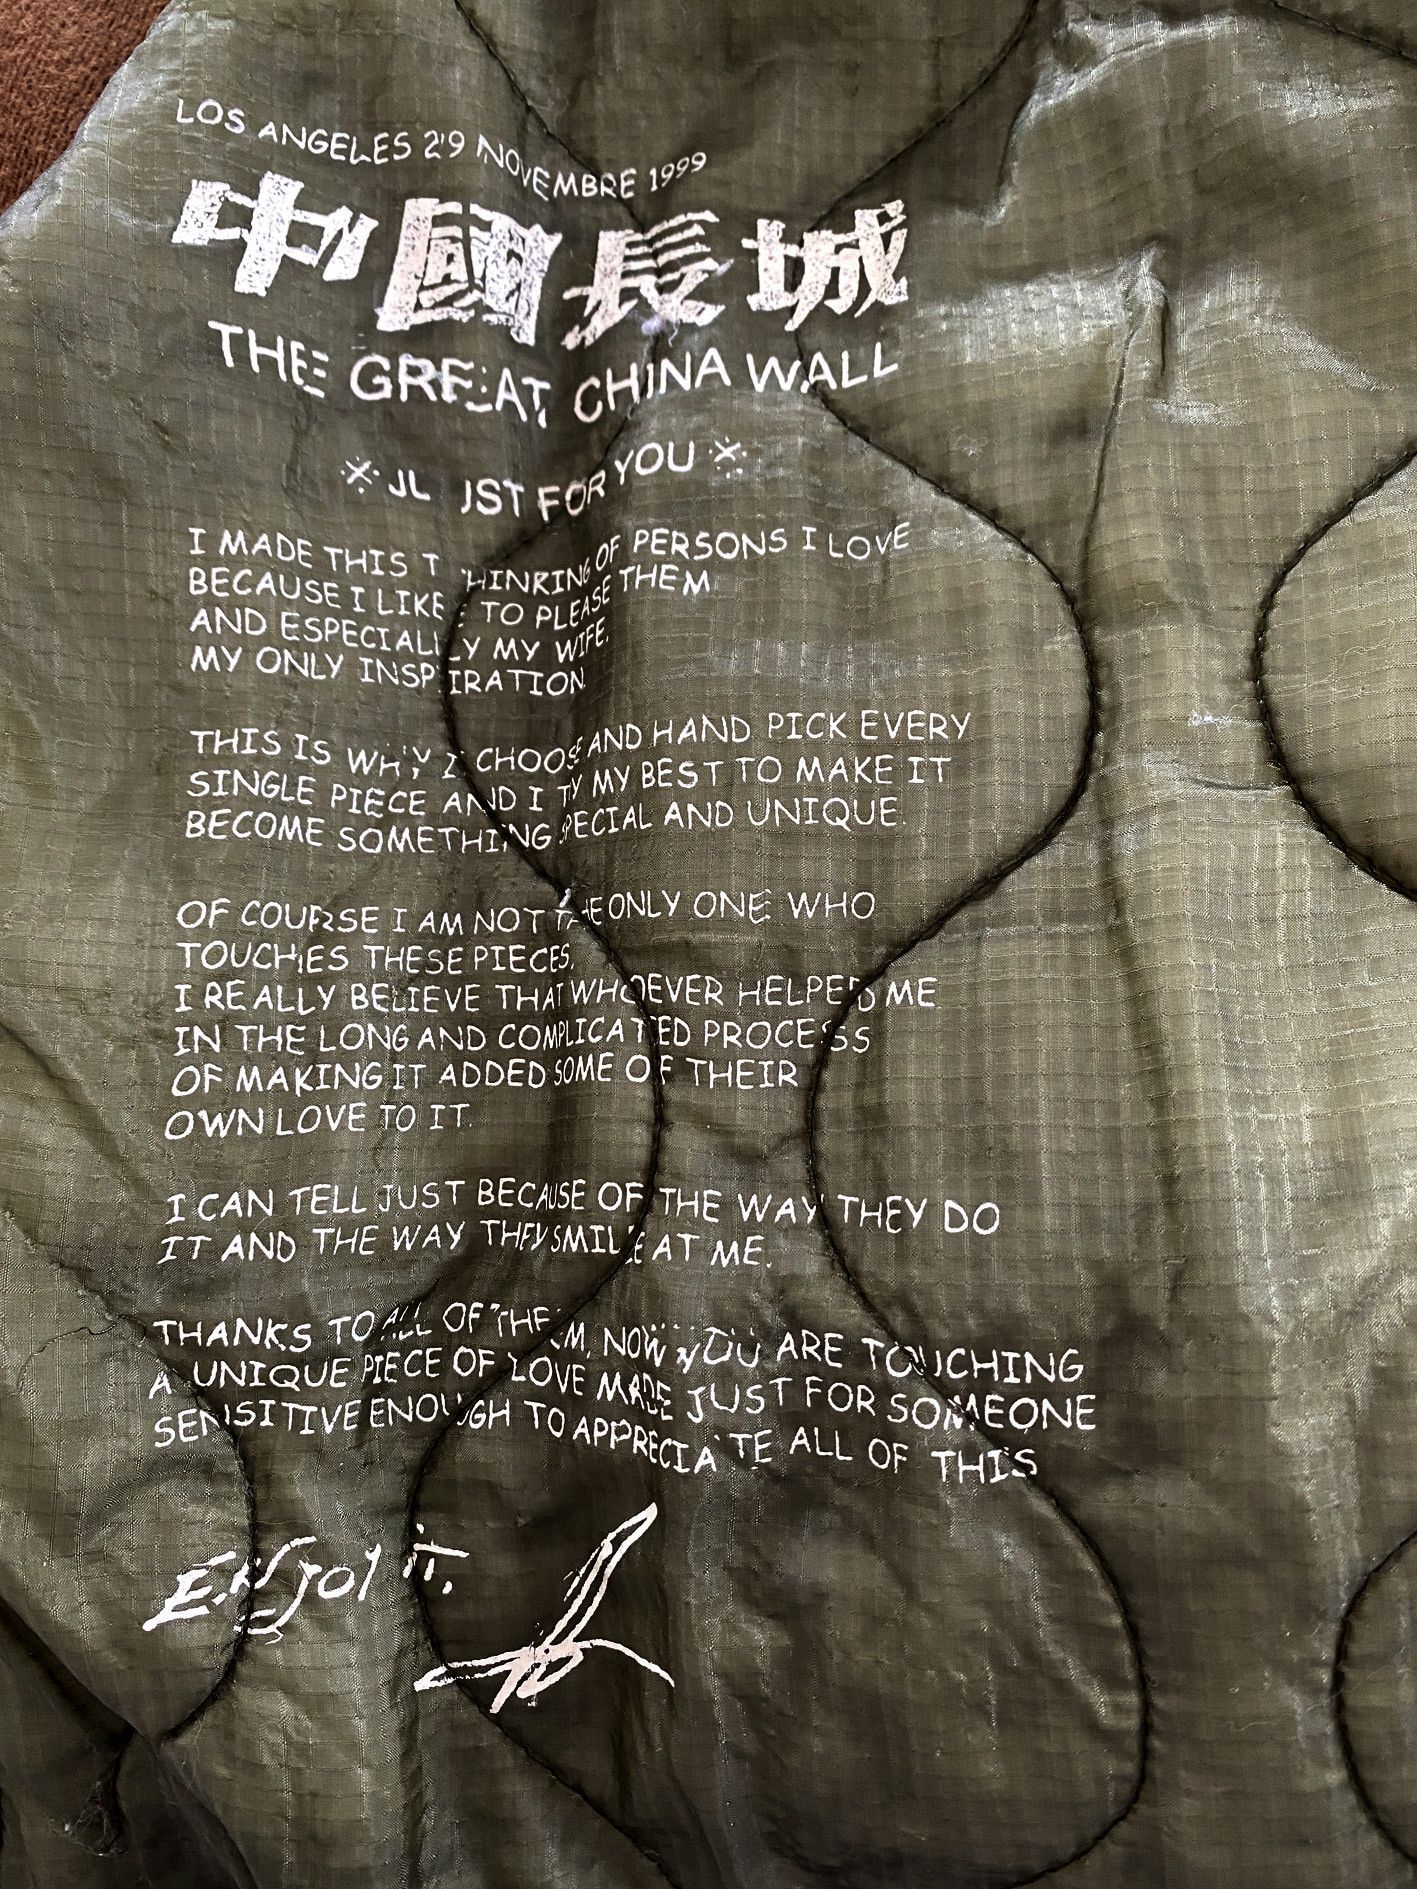 LOS ANGELES 29 NOVEMBRE 1999
中國長城
THE GREAT CHINA WALL
※ JUST FOR YOU ※
I MADE THIS THINKING OF PERSONS I LOVE
BECAUSE I LIKE TO PLEASE THEM
AND ESPECIALLY MY WIFE,
MY ONLY INSPIRATION.
THIS IS WHY I CHOOSE AND HAND PICK EVERY
SINGLE PIECE AND I TY MY BEST TO MAKE IT
BECOME SOMETHING SPECIAL AND UNIQUE.
OF COURSE I AM NOT THE ONLY ONE WHO
TOUCHES THESE PIECES,
I REALLY BELIEVE THAT WHOEVER HELPED ME
IN THE LONG AND COMPLICATED PROCESS
OF MAKING IT ADDED SOME OF THEIR
OWN LOVE TO IT.
I CAN TELL JUST BECAUSE OF THE WAY THEY DO
IT AND THE WAY THEY SMILE AT ME.
THANKS TO ALL OF THEM, NOW YOU ARE TOUCHING
A UNIQUE PIECE OF LOVE MADE JUST FOR SOMEONE
SENSITIVE ENOUGH TO APPRECIATE ALL OF THIS
ENJOY IT,